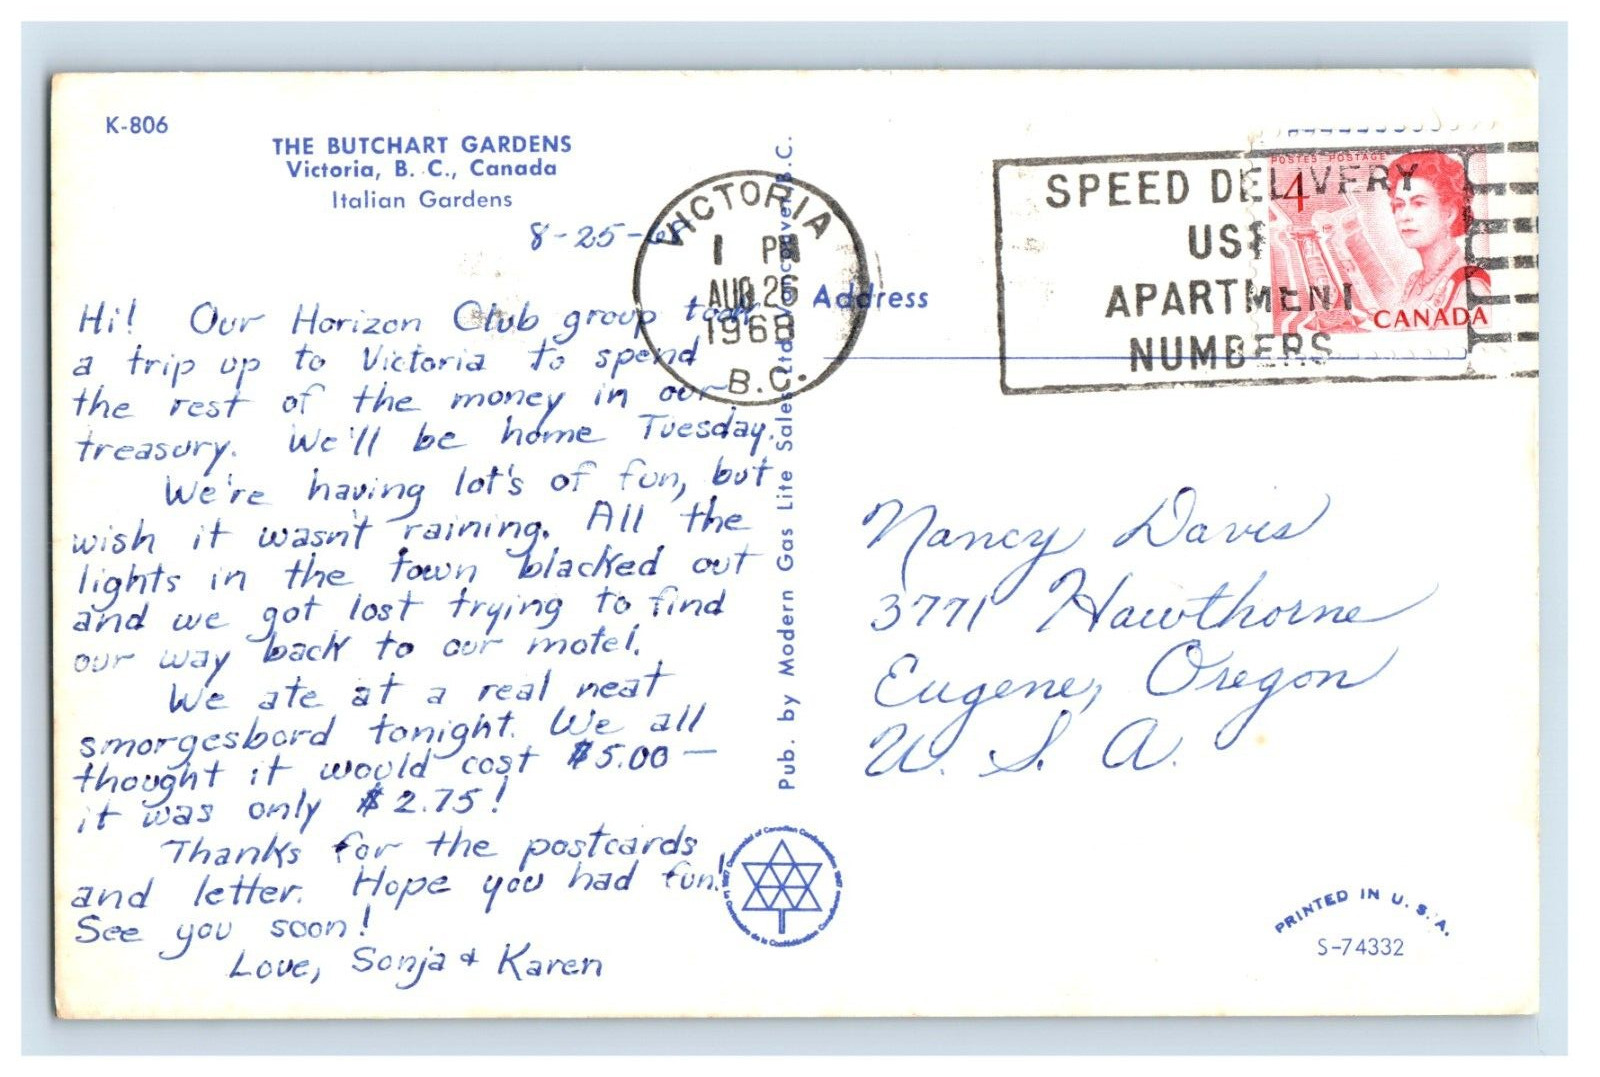 K-806
THE BUTCHART GARDENS
Victoria, B. C., Canada
Italian Gardens
8-25-68
Hi! Our Horizon Club group took
a trip up to Victoria to spend
the rest of the money in our
treasury. We'll be home Tuesday.
We're having lot's of fun, but
wish it wasn't raining. All the
lights in the town blacked out
and we got lost trying to find
our way back to our motel.
We ate at a real neat
smorgesbord tonight. We all
thought it would cost $5.00 —
it was only $2.75!
Thanks for the postcards
and letter. Hope you had fun!
See you soon!
Love, Sonja & Karen
Pub. by Modern Gas Lite Sales Ltd., Vancouver, B.C.
VICTORIA
1 PM
AUG 26
1968
B.C.
SPEED DELIVERY
USE
APARTMENT
NUMBERS
POSTES POSTAGE
4
CANADA
Address
Nancy Davis
3771 Hawthorne
Eugene, Oregon
U. S. A.
PRINTED IN U. S. A.
S-74332